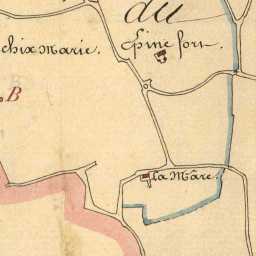 du
choix Marie.
Epine fort.
B
la Mâre.